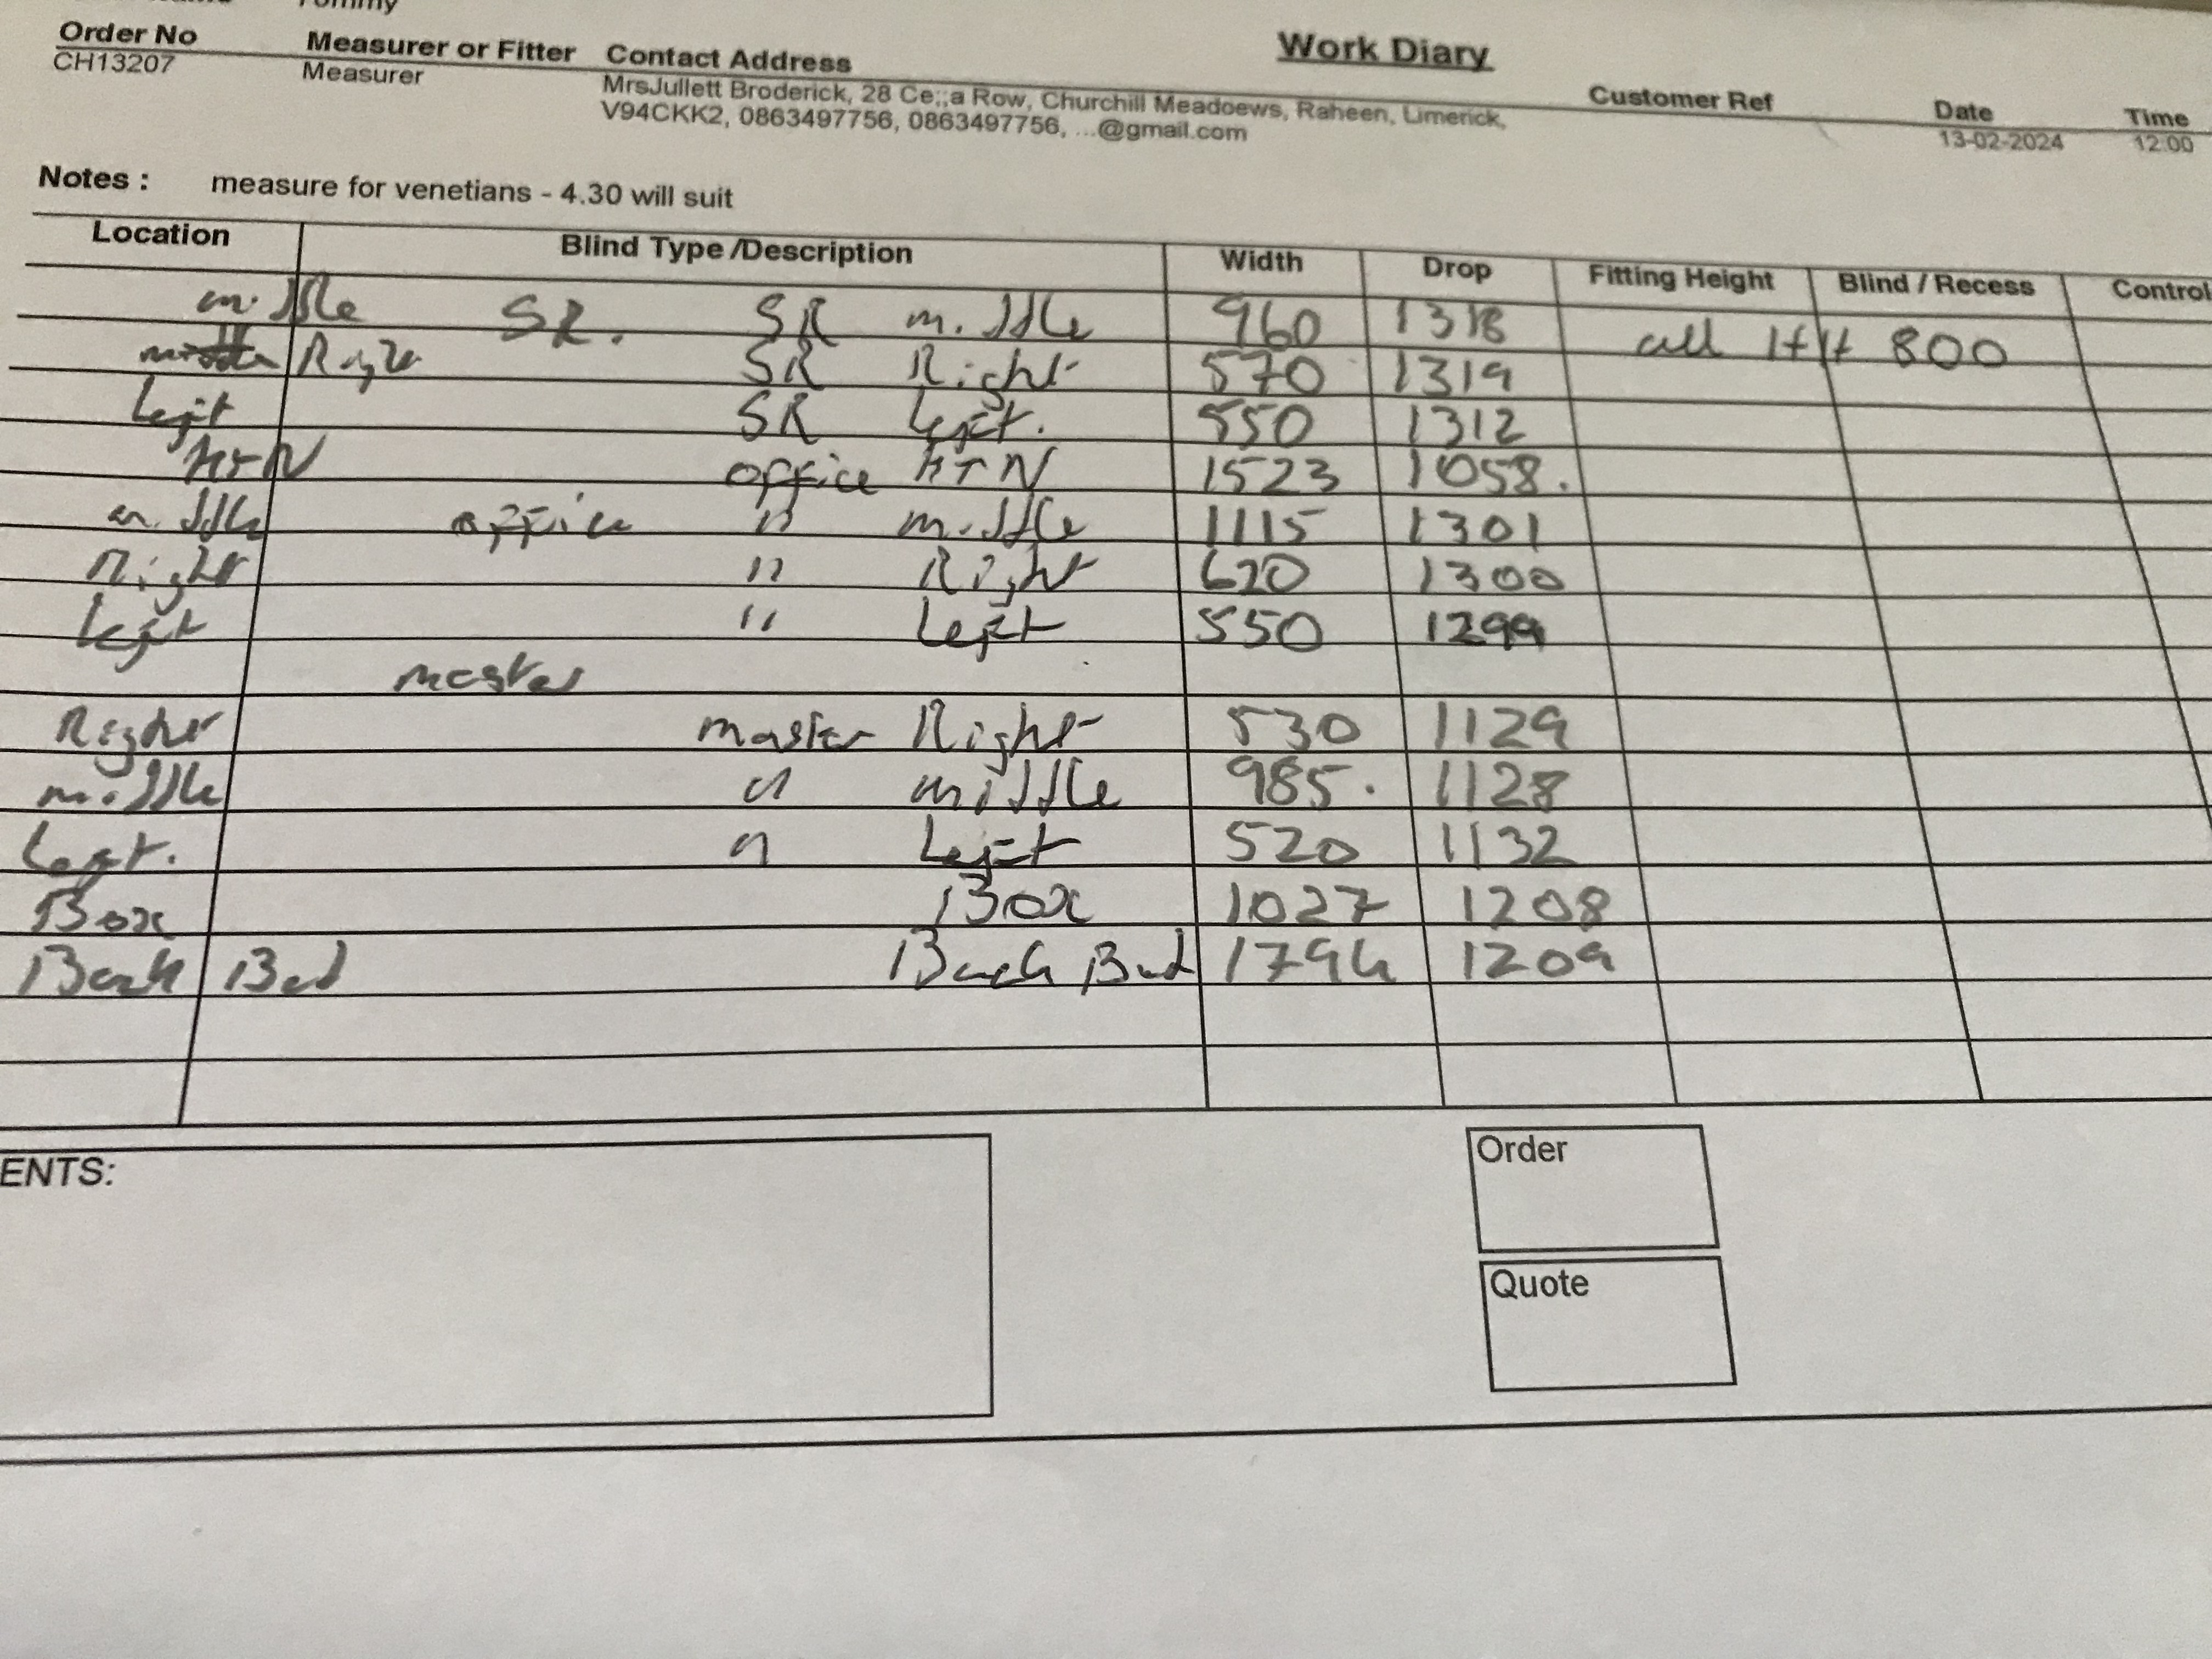 Tommy
Work Diary
Order No Measurer or Fitter Contact Address Customer Ref Date Time
CH13207 Measurer MrsJullett Broderick, 28 Ce;;a Row, Churchill Meadoews, Raheen, Limerick, 13-02-2024 12:00
V94CKK2, 0863497756, 0863497756, ...@gmail.com
Notes : measure for venetians - 4.30 will suit
Location Blind Type /Description Width Drop Fitting Height Blind / Recess Control
middle SR. SR middle 960 1318
Right SR Right 570 1319 all 800
Left SR Left. 550 1312
KTN office KTN 1523 1058.
middle office " middle 1115 1301
Right " Right 620 1300
Left " Left 550 1299
master
Right master Right 530 1129
middle " middle 985. 1128
Left. " Left 520 1132
Box Box 1027 1208
Back Bed Back Bed 1794 1209
ENTS:
Order
Quote